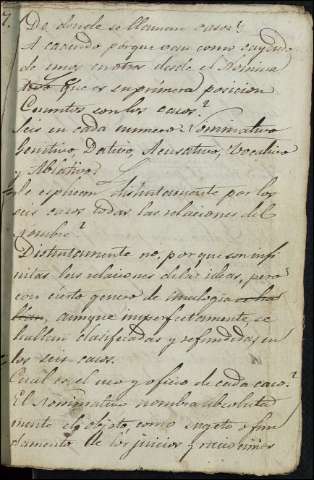 7. De donde se llaman casos?
A cadendo porque van como cayendo
de unos en otros desde el Nomina
tivo que es su primera posicion
Cuantos son los casos?
Seis en cada numero: Nominativo
Genitivo, Dativo, Acusativo, Vocativo
y Ablativo
Se esplican distintamente por los
seis casos todas las relaciones del
nombre?
Distintamente no, porque son infi
nitas las relaciones de las ideas, pero
con cierto genero de analogia
aunque imperfectamente, se
hallan clasificadas y refundidas en
los seis casos.
Cual es el uso y oficio de cada caso?
El Nominativo nombra absoluta
mente el objeto, como sugeto o fun
damento de los juicios y raciocinios